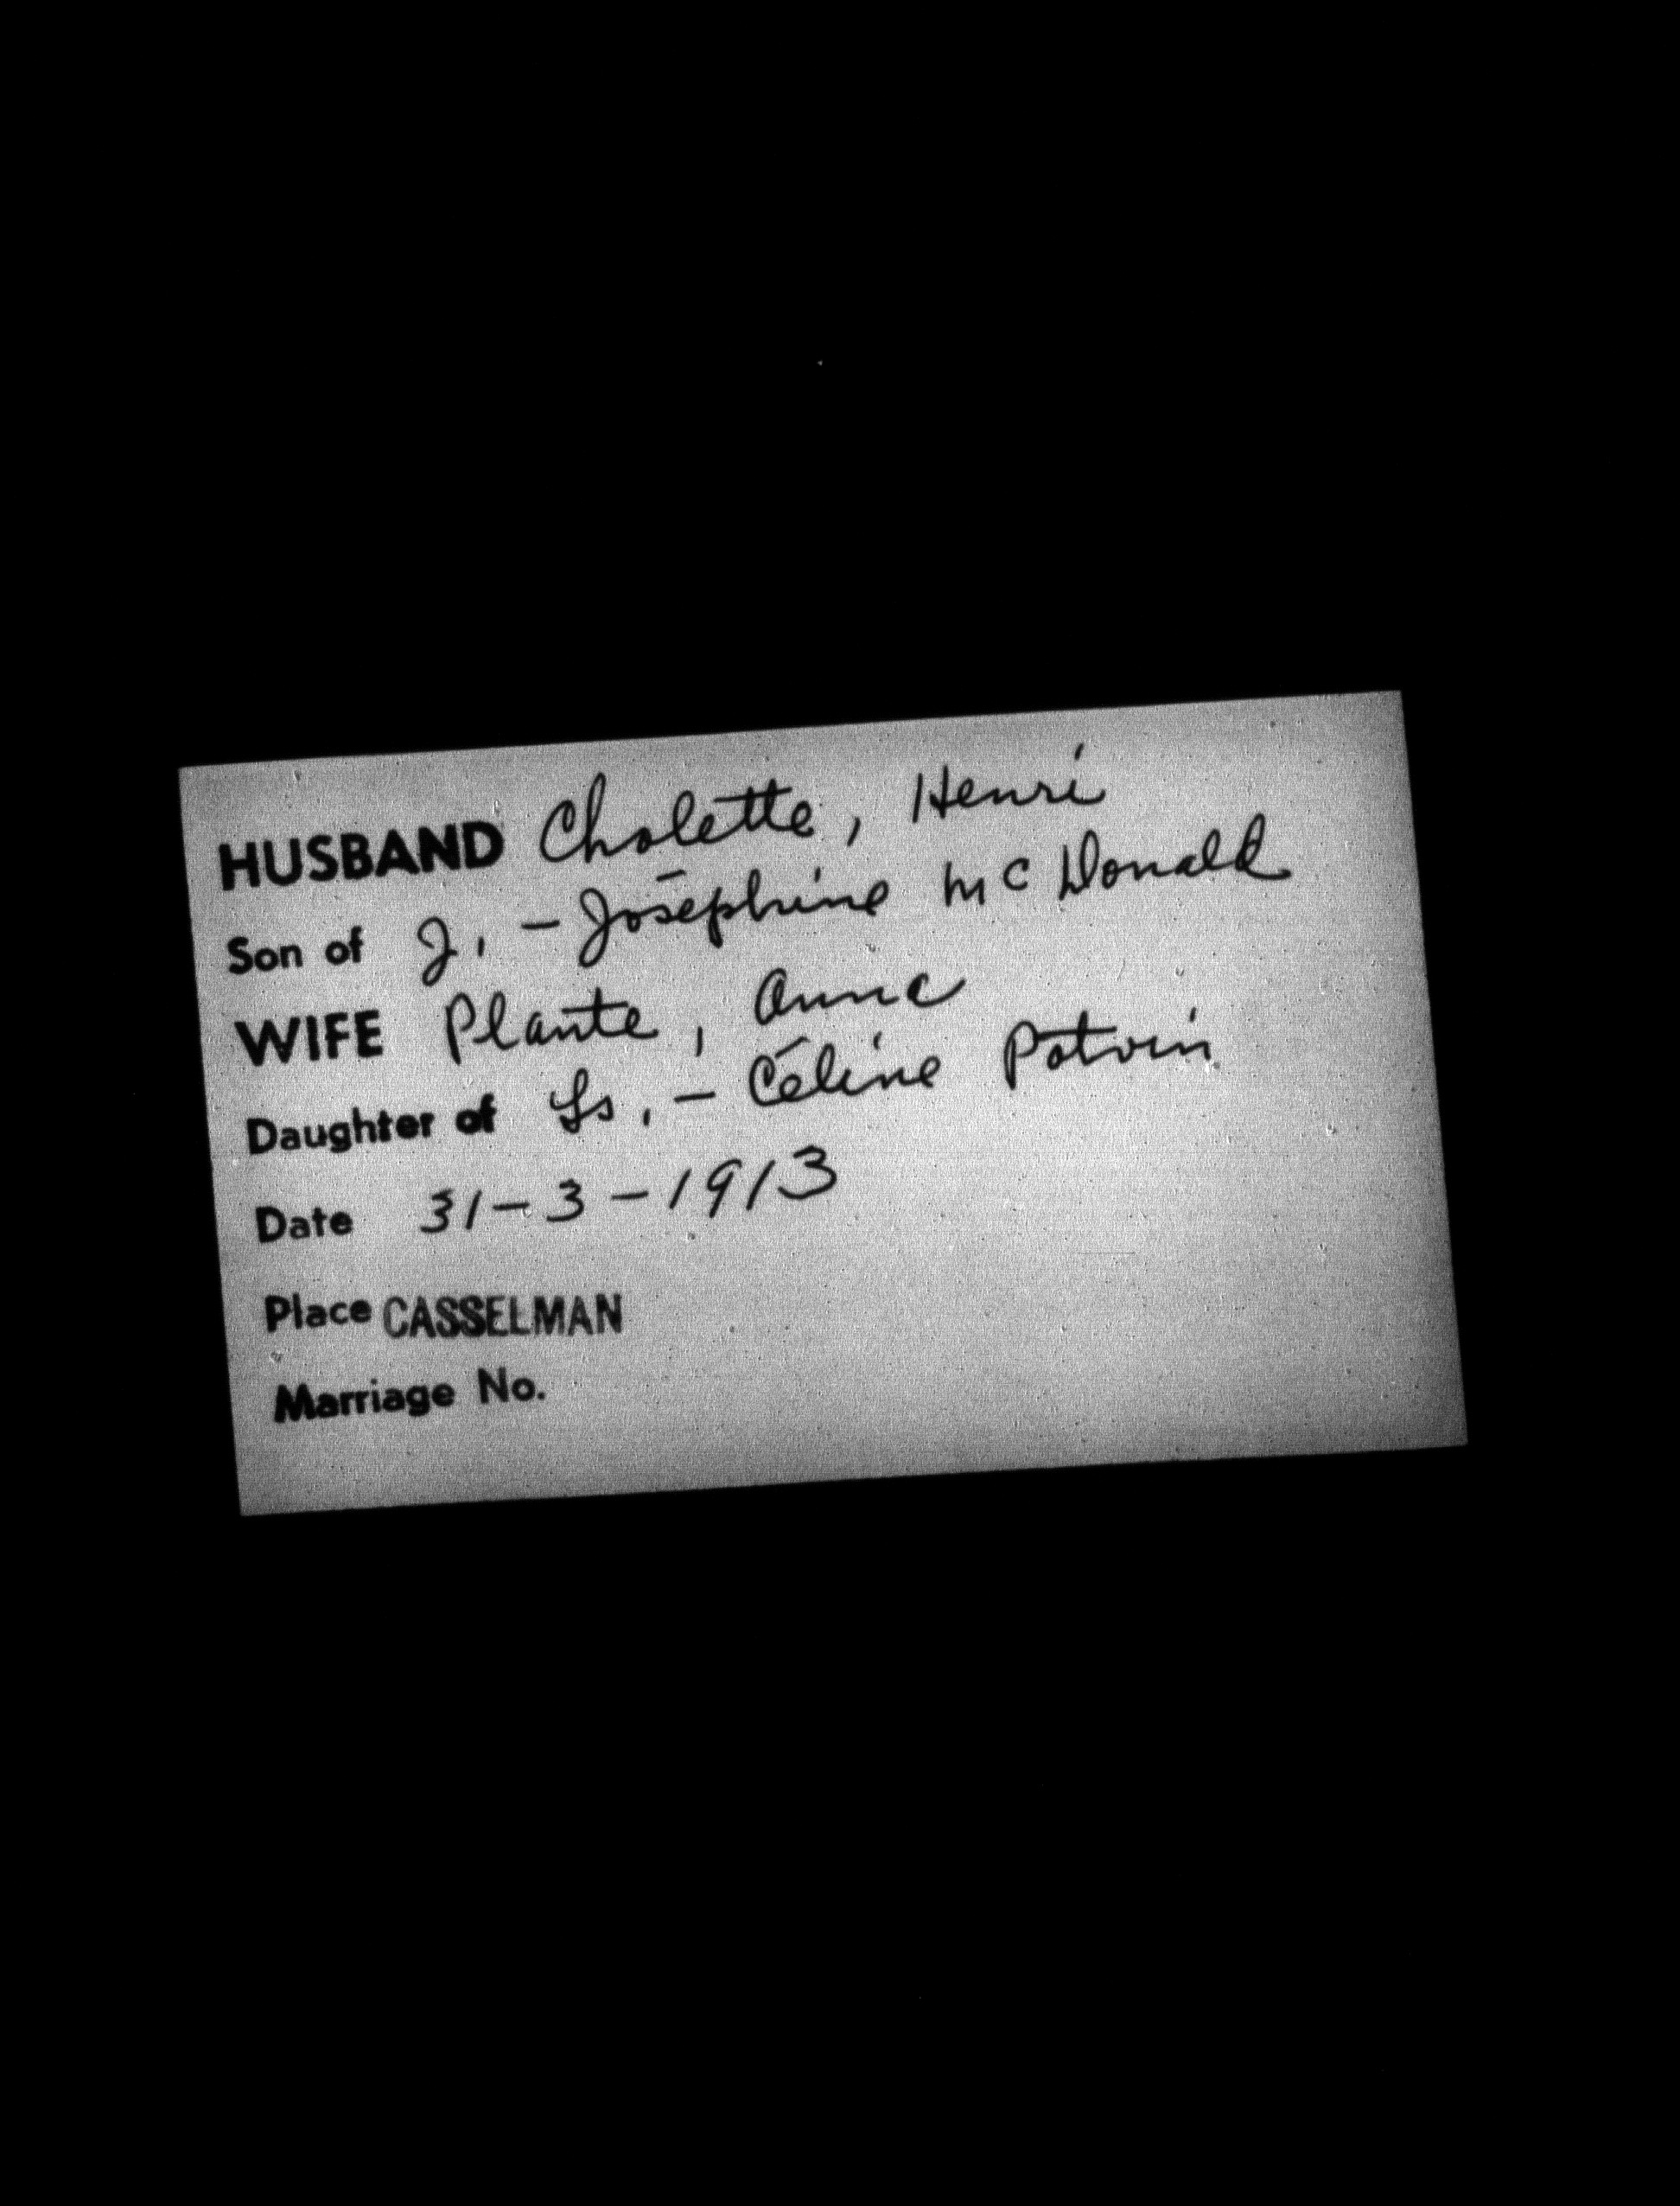 HUSBAND Cholette, Henri
Son of J. - Joséphine McDonald
WIFE Plante, Anna
Daughter of Ls. - Céline Potvin
Date 31-3-1913
Place CASSELMAN
Marriage No.